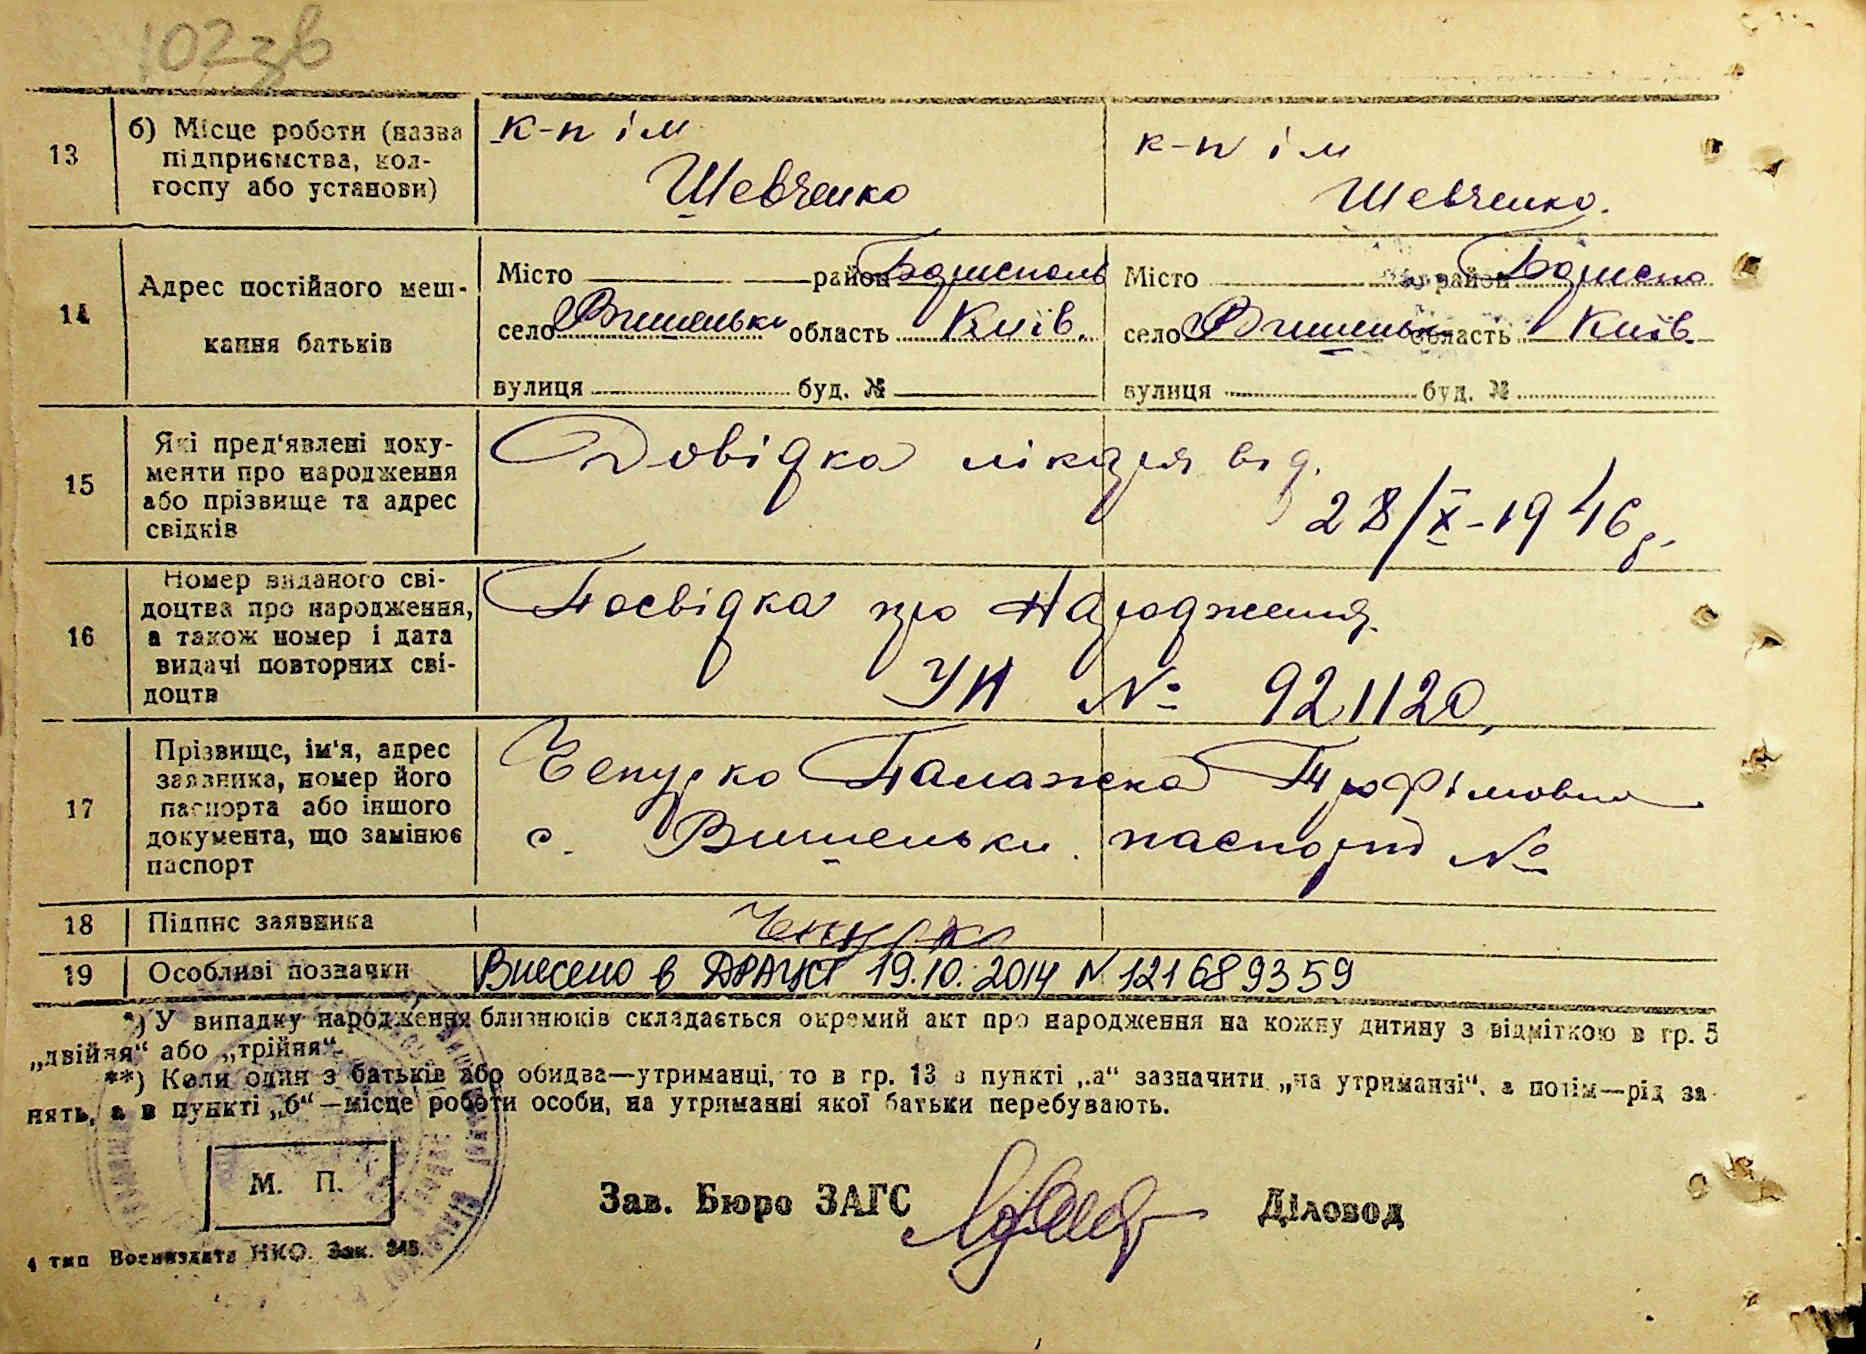 102зв
13
б) Місце роботи (назва
підприємства, кол-
госпу або установи)
к-п ім
Шевченко
к-п ім
Шевченко.
14
Адрес постійного меш-
кання батьків
Місто район Бориспол
село Вишеньки область Київ.
вулиця буд. №
Місто район Борисло
село Вишеньк область Київ
вулиця буд. №
15
Які пред'явлені доку-
менти про народження
або прізвище та адрес
свідків
Довідка лікаря від.
28/X-1946 р.
16
Номер виданого сві-
доцтва про народження,
а також номер і дата
видачі повторних сві-
доцтв
Посвідка про Народження
УН № 921120,
17
Прізвище, ім'я, адрес
заявника, номер його
паспорта або іншого
документа, що замінює
паспорт
Чепурко Палажка Трофімовна
с. Вишеньки. паспорт №
18
Підпис заявника
Чепурко
19
Особливі позначки
Внесено в ДРАЦСГ 19.10.2014 N 121689359
*) У випадку народження близнюків складається окремий акт про народження на кожну дитину з відміткою в гр. 5
„двійня“ або „трійня“.
**) Коли один з батьків або обидва—утриманці, то в гр. 13 в пункті „а“ зазначити „на утриманні“, а потім—рід за-
нять, а в пункті „б“—місце роботи особи, на утриманні якої батьки перебувають.
М. П.
Зав. Бюро ЗАГС
Діловод
4 тип Воениздата НКО. Зак. 345.